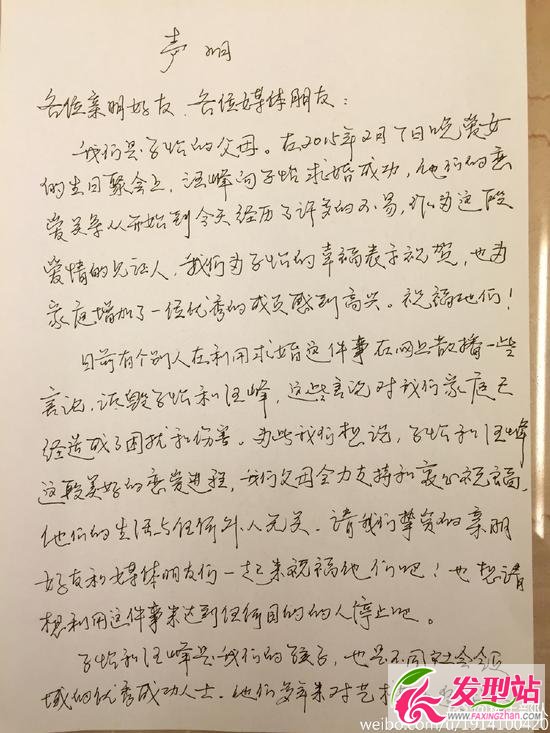 声明
各位亲朋好友、各位媒体朋友：
我们是子怡的父母。在2015年2月7日晚爱女
的生日聚会上，汪峰向子怡求婚成功，他们的恋
爱关系从开始到今天经历了许多的不易，作为这段
爱情的见证人，我们为子怡的幸福表示祝贺，也为
家庭增加了一位优秀的成员感到高兴。祝福他们！
目前有个别人在利用求婚这件事在网上散播一些
言论，诋毁子怡和汪峰，这些言论对我们家庭已
经造成了困扰和伤害。为此我们想说，子怡和汪峰
这段美好的恋爱进程，我们父母全力支持和衷心祝福，
他们的生活与任何外人无关。请我们挚爱的亲朋
好友和媒体朋友们一起来祝福他们吧！也想请
想利用这件事来达到任何目的的人停止吧。
子怡和汪峰是我们的孩子，也是不同社会
域的优秀成功人士。他们多年来对艺
发型站
www.FAXINGZHAN.com
weibo.com/u/1914100420